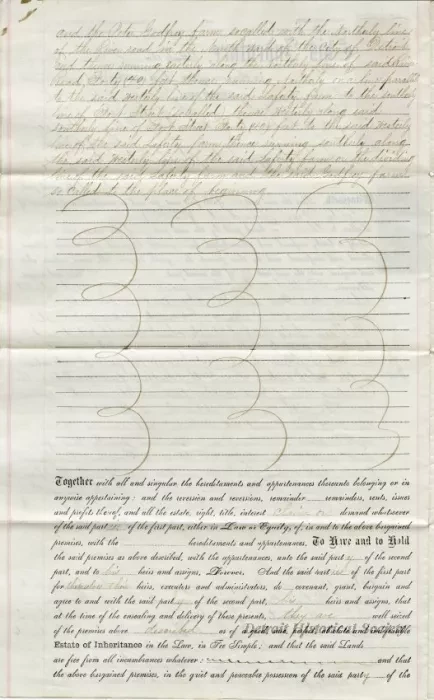 and the Peter Godfroy farm so called with the Northerly line
of the River road in the North part of the City of Detroit
and thence running westerly along the northerly line of said River
Road Forty (40) feet thence running Northerly on a line parallel
to the said westerly line of the said Lafferty Farm to the southerly
line of Fort Street so called; thence westerly along said
southerly line of Fort Street Forty (40) feet to the said westerly
line of the said Lafferty farm thence running southerly along
the said westerly line of the said Lafferty farm or the dividing
line of the said Lafferty farm and the said Godfroy farm
so called to the place of beginning
Together with all and singular the hereditaments and appurtenances thereunto belonging or in
anywise appertaining: and the reversion and reversions, remainder remainders, rents, issues
and profits thereof, and all the estate, right, title, interest claim or demand whatsoever
of the said part of the first part, either in Law or Equity, of, in and to the above bargained
premises, with the hereditaments and appurtenances. To Have and to Hold
the said premises as above described, with the appurtenances, unto the said part y of the second
part, and to his heirs and assigns, Forever. And the said part of the first part
for themselves their heirs, executors and administrators, do covenant, grant, bargain and
agree to and with the said part y of the second part, his heirs and assigns, that
at the time of the ensealing and delivery of these presents, they are well seized
of the premises above described as of a good, sure, perfect, absolute and indefeasible
Detroit Historical Society
Estate of Inheritance in the Law, in Fee Simple; and that the said Lands
are free from all incumbrances whatever and that
the above bargained premises, in the quiet and peaceable possession of the said part y of the